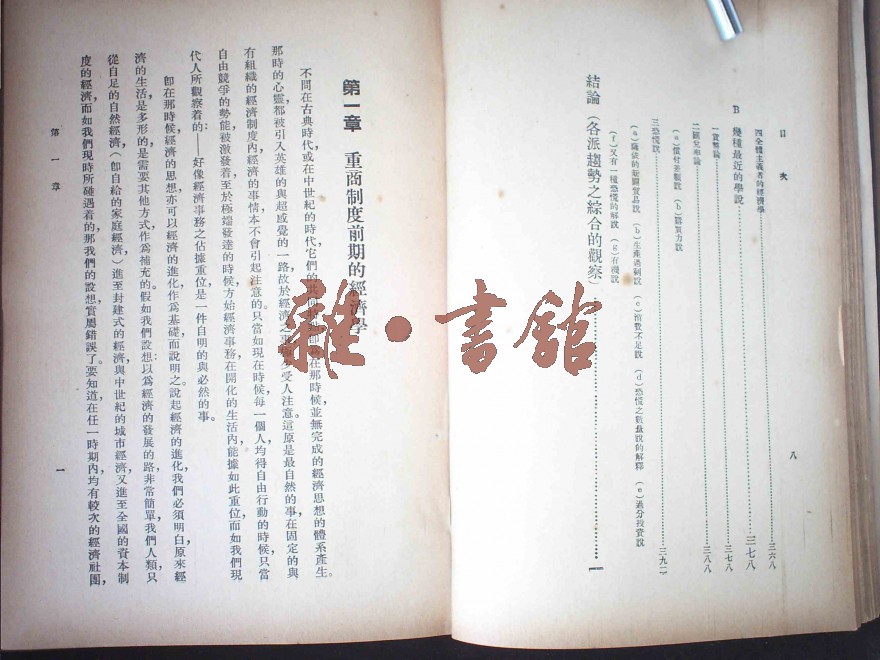 目次
八
四 全體主義者的經濟學……三六八
B 幾種最近的學說……三七八
一 貨幣論……三七八
二 國化布論……三八八
(a) 償付差觀說 (b) 購買力說
三 恐慌說……三九二
(a) 薩依的新關貿易說 (b) 生產過剩說 (c) 消費不足說 (d) 恐慌之數量說的解釋 (e) 過分投資說
(f) 又有一種恐慌的解說 (g) 有機說
結論(各派趨勢之綜合的觀察)……一
第一章 重商制度前期的經濟學
不問在古典時代或在中世紀的時代,它們的共同點即在那時候並無完成的經濟思想的體系產生。
那時的心靈都被引入英雄的與超感覺的一路,故於經濟之事很少受人注意。這原是最自然的事,在固定的與
有組織的經濟制度內,經濟的事情本不會引起注意的。只當如現在時候,每一個人均得自由行動的時候,只當
自由競爭的勢能被激發着至於極端發達的時候,方始經濟事務在開化的生活內,能據如此重位,而如我們現
代人所觀察着的:——好像經濟事務之佔據重位是一件自明的與必然的事。
卽在那時候,經濟的思想亦可以經濟的進化作爲基礎而說明之。說起經濟的進化,我們必須明白,原來經
濟的生活是多形的,是需要其他方式作爲補充的。假如我們設想:以爲經濟的發展的路非常簡單,我們人類,只
從自足的自然經濟,(卽自給的家庭經濟)進至封建式的經濟,與中世紀的城市經濟,又進至全國的資本制
度的經濟,而如我們現時所碰遇着的,那我們的設想,實屬錯誤了。要知道,在任一時期內,均有較次的經濟社團,
第一章
一
雜·書館